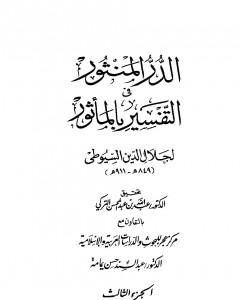 الدر المنثور
في
التفسير بالمأثور
لجلال الدين السيوطي
(٨٤٩هـ - ٩١١هـ)
تحقيق
الدكتور عبد الله بن عبد المحسن التركي
بالتعاون مع
مركز هجر للبحوث والدراسات العربية والإسلامية
الدكتور عبد السند حسن يمامة
الجزء الثالث